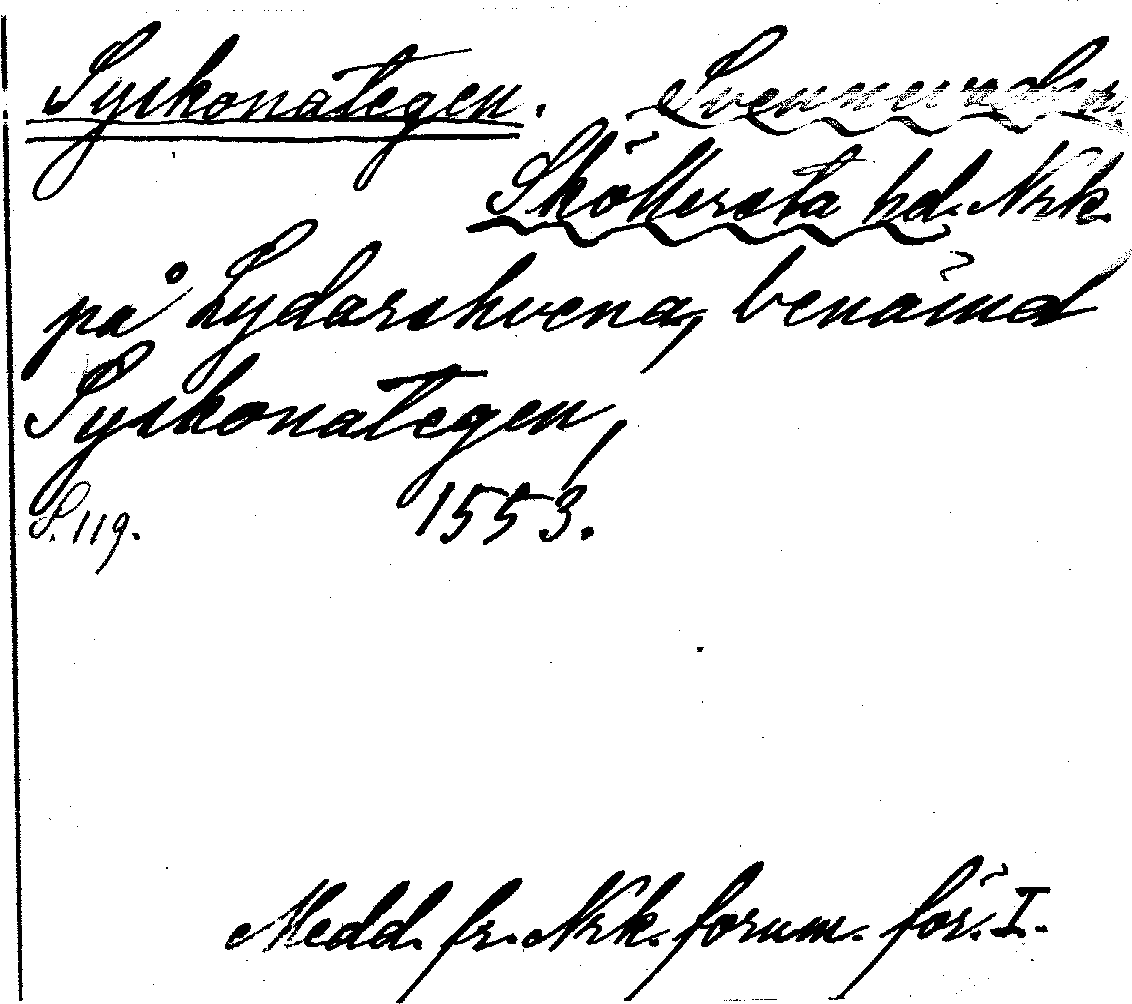 Syskonategen. Svennevads sn.
Sköllersta hd. Nrk.
på Lydarshvena, benämd
Syskonategen,
S. 119. 1553.
Medd. fr. Nrk. fornm. för. I.